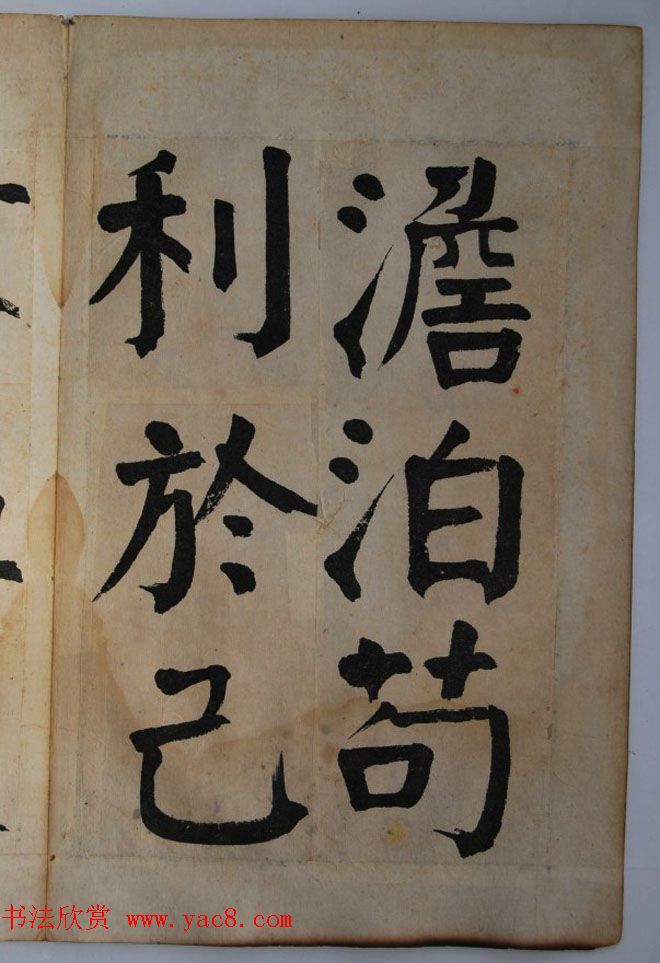 澹泊苟
利於己
书法欣赏 www.yac8.com